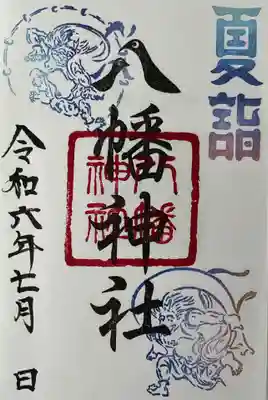 夏詣
八幡神社
八幡神社
令和六年七月 日